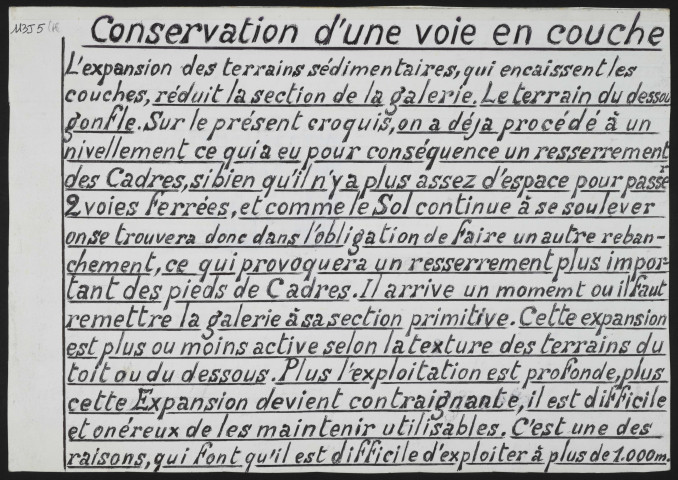 Conservation d'une voie en couche
L'expansion des terrains sédimentaires, qui encaissent les
couches, réduit la section de la galerie. Le terrain du dessou
gonfle. Sur le présent croquis, on a déja procédé à un
nivellement ce qui a eu pour conséquence un resserrement
des Cadres, si bien qu'il n'y a plus assez d'espace pour passe
2 voies ferrées, et comme le Sol continue à se soulever
on se trouvera donc dans l'obligation de faire un autre reban-
chement, ce qui provoquera un resserrement plus impor-
tant des pieds de Cadres. Il arrive un momemt ou il faut
remettre la galerie à sa section primitive. Cette expansion
est plus ou moins active selon la texture des terrains du
toit ou du dessous. Plus l'exploitation est profonde, plus
cette Expansion devient contraignante, il est difficile
et onéreux de les maintenir utilisables. C'est une des
raisons, qui font qu'il est difficile d'exploiter à plus de 1.000m.